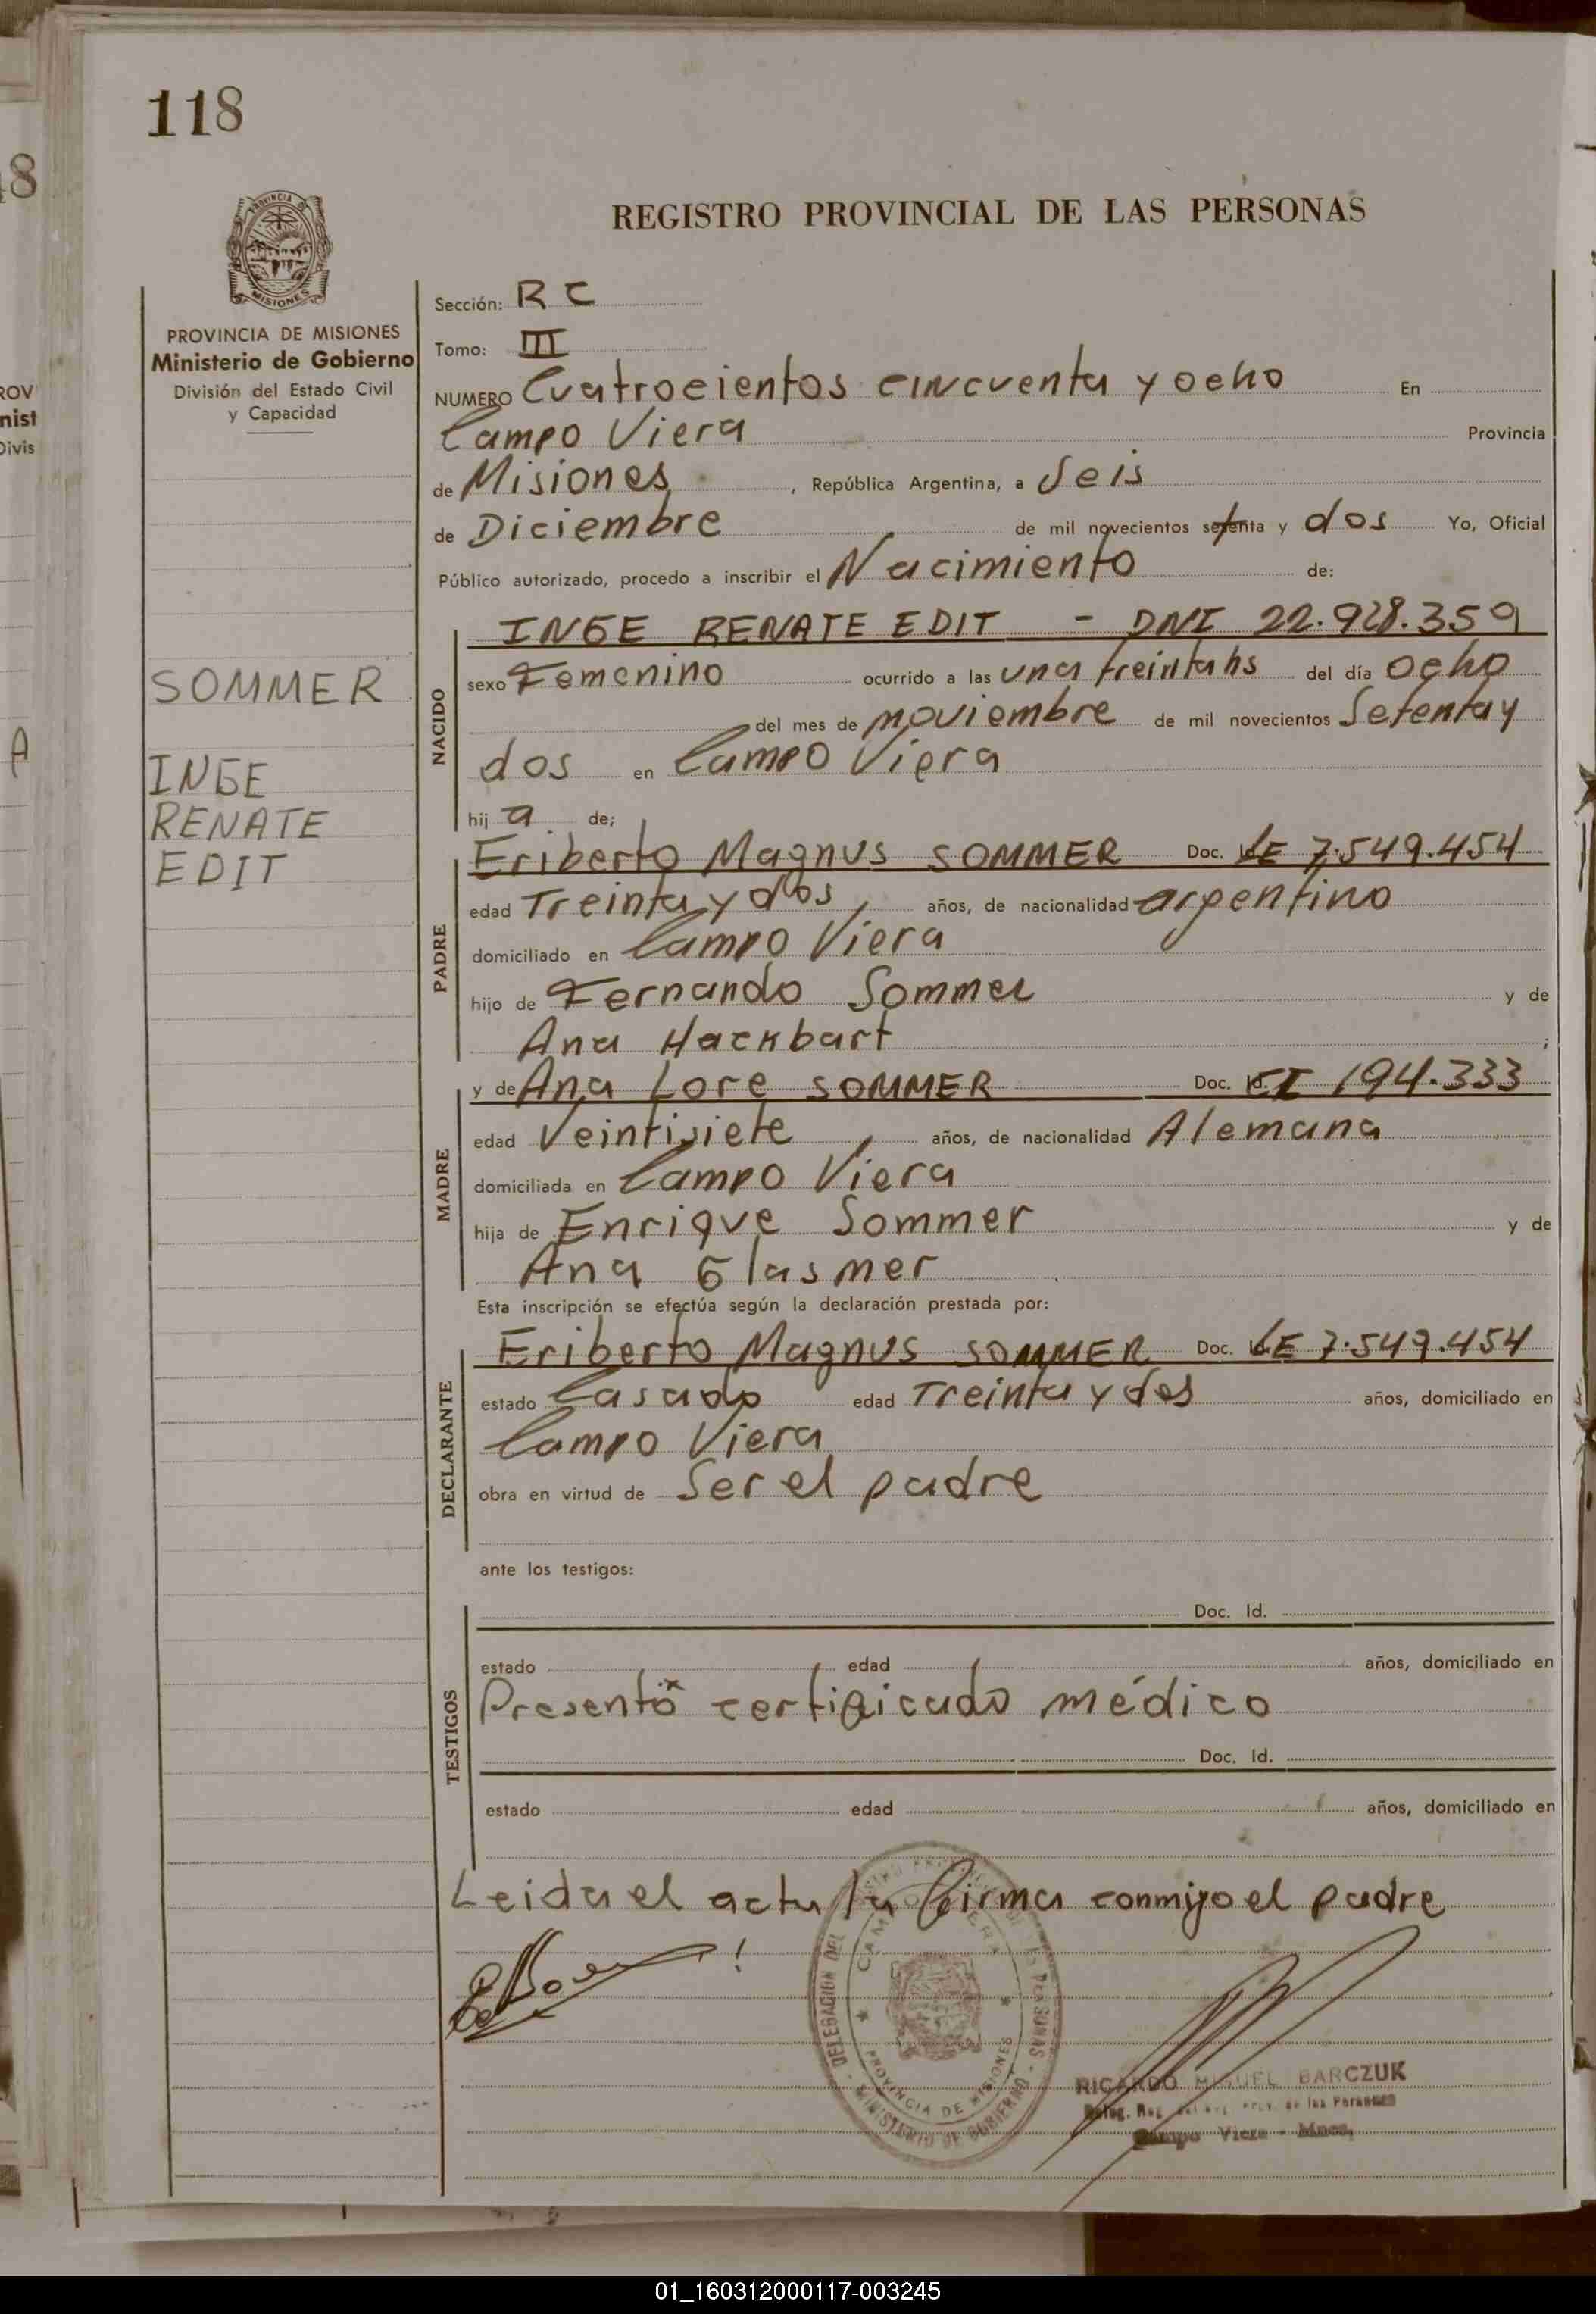 118
8
REGISTRO PROVINCIAL DE LAS PERSONAS
PROVINCIA
MISIONES
PROVINCIA DE MISIONES
Ministerio de Gobierno
División del Estado Civil
y Capacidad
ROV
nist
Divis
A
SOMMER
INGE
RENATE
EDIT
Sección: RC
Tomo: III
NUMERO Cuatrocientos cincuenta y ocho En
Campo Viera Provincia
de Misiones, República Argentina, a Seis
de Diciembre de mil novecientos setenta y dos Yo, Oficial
Público autorizado, procedo a inscribir el Nacimiento de:
NACIDO
INGE RENATE EDIT - DNI 22.928.359
sexo Femenino ocurrido a las una treinta hs del día ocho
del mes de noviembre de mil novecientos Setenta y
dos en Campo Viera
hij a de;
PADRE
Eriberto Magnus SOMMER Doc. LE 7.549.454
edad Treinta y dos, años, de nacionalidad argentino
domiciliado en Campo Viera
hijo de Fernando Sommer y de
Ana Hackbart ;
MADRE
y de Ana Lore SOMMER Doc. Id. CI 194.333
edad Veintisiete, años, de nacionalidad Alemana
domiciliada en Campo Viera
hija de Enrique Sommer y de
Ana Glasmer
Esta inscripción se efectúa según la declaración prestada por:
DECLARANTE
Eriberto Magnus SOMMER Doc. LE 7.549.454
estado Casado edad Treinta y dos años, domiciliado en
Campo Viera
obra en virtud de Ser el padre
ante los testigos:
TESTIGOS
Doc. Id.
estado edad años, domiciliado en
Presentó certificado médico
Doc. Id.
estado edad años, domiciliado en
Leida el acta la firma conmigo el padre
DELEGACION DEL
PERSONAS
CAMPO VIERA
PROVINCIA DE MISIONES
MINISTERIO DE GOBIERNO
RICARDO MIGUEL BARCZUK
Deleg. Reg. Prov. de las Personas
Campo Viera - Mnes.
01_160312000117-003245